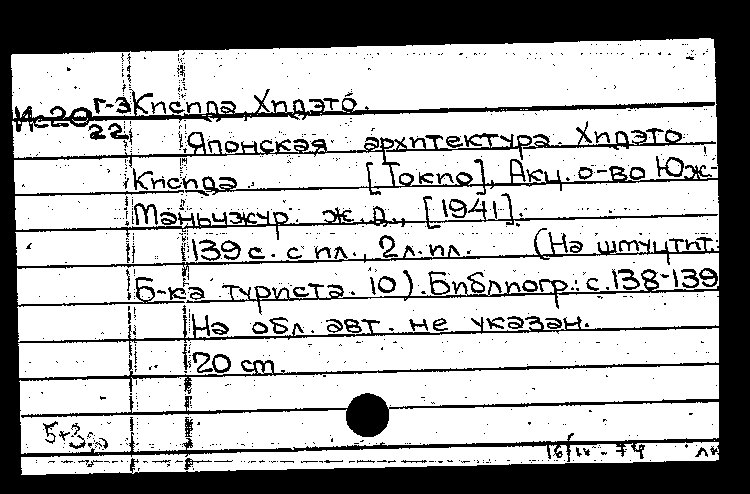 Ис20 Г-3 Кисида, Хидэто.
22
Японская архитектура. Хидэто
Кисида. [Токио], Акц. о-во Юж.-
Маньчжур. ж. д., [1941].
139 с. с ил., 2 л. ил. (На шмуцтит.:
Б-ка туриста. 10). Библиогр.: с. 138-139
На обл. авт. не указан.
20 cm.
5+3